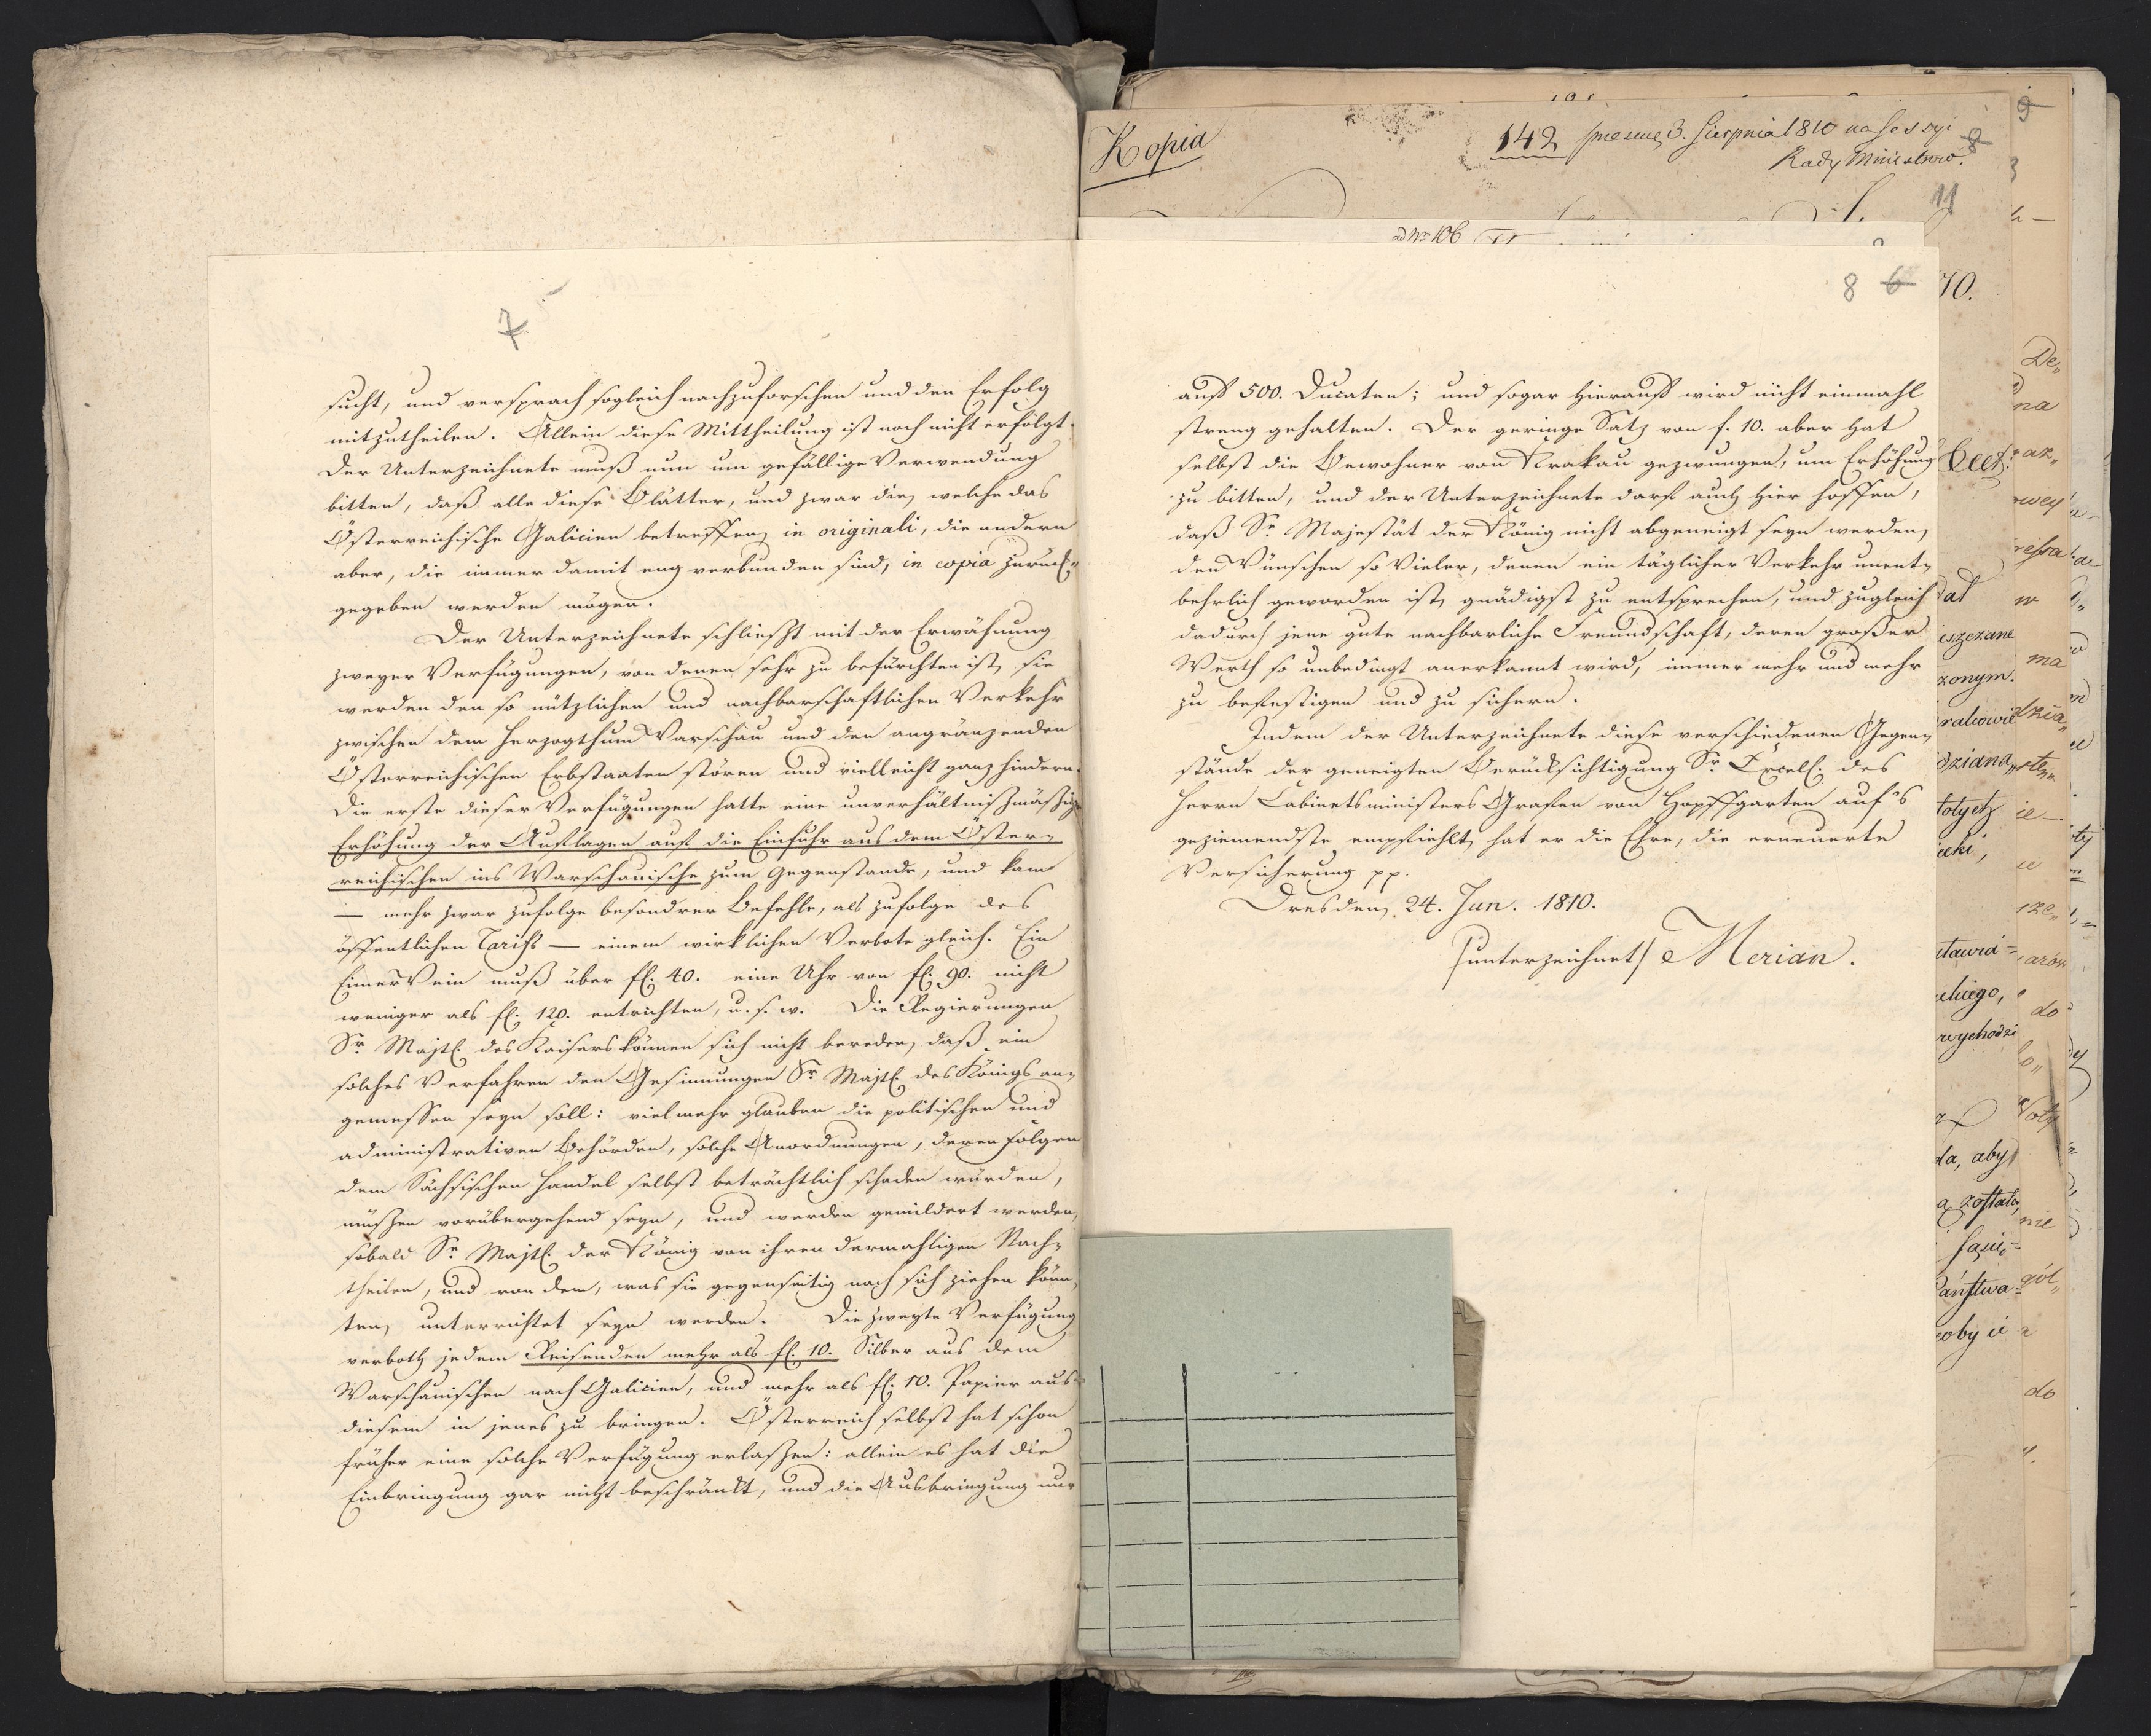 7
sucht, und versprach sogleich nachzuforschen und den Erfolg
mitzutheilen. Allein diese Mittheilung ist noch nicht erfolgt.
Der Unterzeichnete muß nun um gefällige Verwendung
bitten, daß alle diese Blätter, und zwar die, welche das
Österreichische Galicien betreffen, in originali, die andern
aber, die immer damit eng verbunden sind, in copia zurück-
gegeben werden mögen.
Der Unterzeichnete schließt mit der Erwähnung
zweyer Verfügungen, von denen sehr zu befürchten ist, sie
werden den so nützlichen und nachbarschaftlichen Verkehr
zwischen dem Herzogthum Warschau und den angränzenden
Österreichischen Erbstaaten stören und vielleicht ganz hindern.
Die erste dieser Verfügungen hatte eine unverhältnißmäßige
Erhöhung der Auflagen auf die Einfuhr aus dem Öster-
reichischen ins Warschauische zum Gegenstande, und kam
— mehr zwar zufolge besondrer Befehle, als zufolge des
öffentlichen Tariffs — einem wirklichen Verbote gleich. Ein
Eimer Wein muß über fl. 40. eine Uhr von fl. 90. nicht
weniger als fl. 120. entrichten, u. s. w. Die Regierungen
Sr. Majtt. des Kaisers können sich nicht bereden, daß ein
solches Verfahren den Gesinnungen Sr. Majtt. des Königs an-
gemessen seyn soll: vielmehr glauben die politischen und
administrativen Behörden, solche Anordnungen, deren Folgen
dem Sächsischen Handel selbst beträchtlich schaden würden,
müßten vorübergehend seyn, und werden gemildert werden,
sobald Sr. Majtt. der König von ihren dermahligen Nach-
theilen, und von dem, was sie gegenseitig nach sich ziehen könn-
ten, unterrichtet seyn werden. Die zweyte Verfügung
verboth jedem Reisenden mehr als fl. 10. Silber aus dem
Warschauischen nach Galicien, und mehr als fl. 10. Papier aus
diesem in jenes zu bringen. Österreich selbst hat schon
früher eine solche Verfügung erlaßen: allein es hat die
Einbringung gar nicht beschränkt, und die Ausbringung nur
Kopia
142 3. Sierpnia 1810 na Sessyi
Rady Ministrow.
11
ad Nr. 106
8 6
auf 500. Ducaten; und sogar hierauf wird nicht einmahl
streng gehalten. Der geringe Satz von f. 10. aber hat
selbst die Bewohner von Krakau gezwungen, um Erhöhung
zu bitten, und der Unterzeichnete darf auch hier hoffen,
daß Sr. Majestät der König nicht abgeneigt seyn werden,
den Wünschen so Vieler, denen ein täglicher Verkehr unent-
behrlich geworden ist, gnädigst zu entsprechen, und zugleich
dadurch jene gute nachbarliche Freundschaft, deren großer
Werth so unbedingt anerkannt wird, immer mehr und mehr
zu befestigen und zu sichern.
Indem der Unterzeichnete diese verschiedenen Gegen-
stände der geneigten Berücksichtigung Sr. Excell. des
Herrn Cabinetsministers Grafen von Hopffgarten auf's
geziemendste empfiehlt, hat er die Ehre, die erneuerte
Versicherung pp.
Dresden, 24. Jun. 1810.
/unterzeichnet/ Merian.